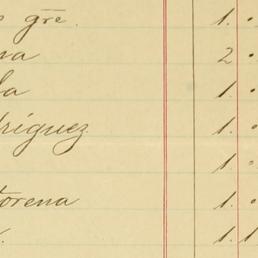 gre. 1.
na 2.
la 1.
driguez 1.
1.
torena 1.
1.1